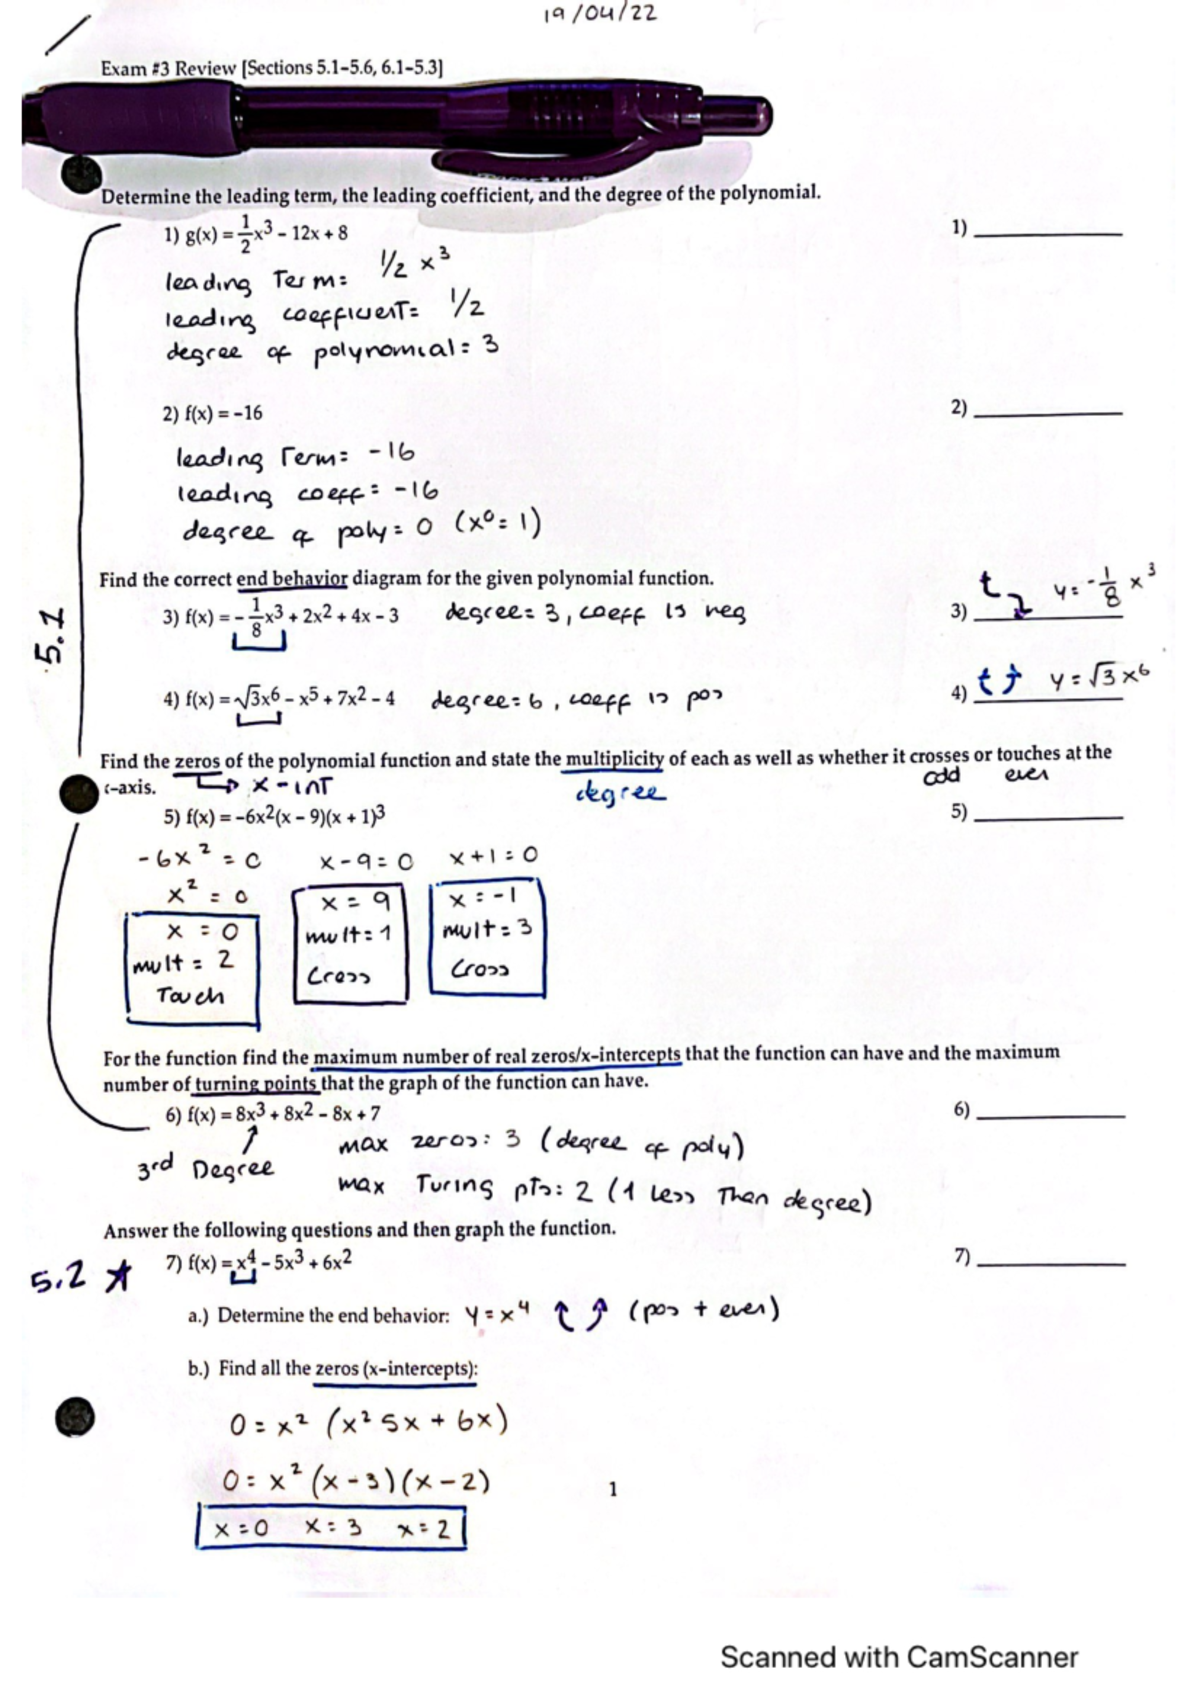 19/04/22
Exam #3 Review [Sections 5.1-5.6, 6.1-5.3]
Determine the leading term, the leading coefficient, and the degree of the polynomial.
1) g(x) = 1/2 x³ - 12x + 8
1)
leading Term: 1/2 x³
leading coefficient= 1/2
degree of polynomial= 3
2) f(x) = -16
2)
leading Term= -16
leading coeff= -16
degree of poly= 0 (x⁰= 1)
5.1
Find the correct end behavior diagram for the given polynomial function.
3) f(x) = - 1/8 x³ + 2x² + 4x - 3 degree= 3, coeff is neg
3) y= - 1/8 x³
4) f(x) = √3x⁶ - x⁵ + 7x² - 4 degree= 6, coeff is pos
4) y=√3 x⁶
Find the zeros of the polynomial function and state the multiplicity of each as well as whether it crosses or touches at the
x-axis. → x-int degree odd even
5) f(x) = -6x²(x - 9)(x + 1)³
5)
-6x² = 0 x-9=0 x+1=0
x² = 0 x = 9 x=-1
x = 0 mult=1 mult=3
mult = 2 Cross Cross
Touch
For the function find the maximum number of real zeros/x-intercepts that the function can have and the maximum
number of turning points that the graph of the function can have.
6) f(x) = 8x³ + 8x² - 8x + 7
6)
↑ max zeros: 3 (degree of poly)
3rd Degree
max Turing pts: 2 (1 less Than degree)
Answer the following questions and then graph the function.
5.2 ★ 7) f(x) = x⁴ - 5x³ + 6x²
7)
a.) Determine the end behavior: y=x⁴ ↑ ↑ (pos + even)
b.) Find all the zeros (x-intercepts):
0= x² (x² 5x + 6x)
0= x² (x-3)(x-2)
1
x=0 x=3 x=2
Scanned with CamScanner